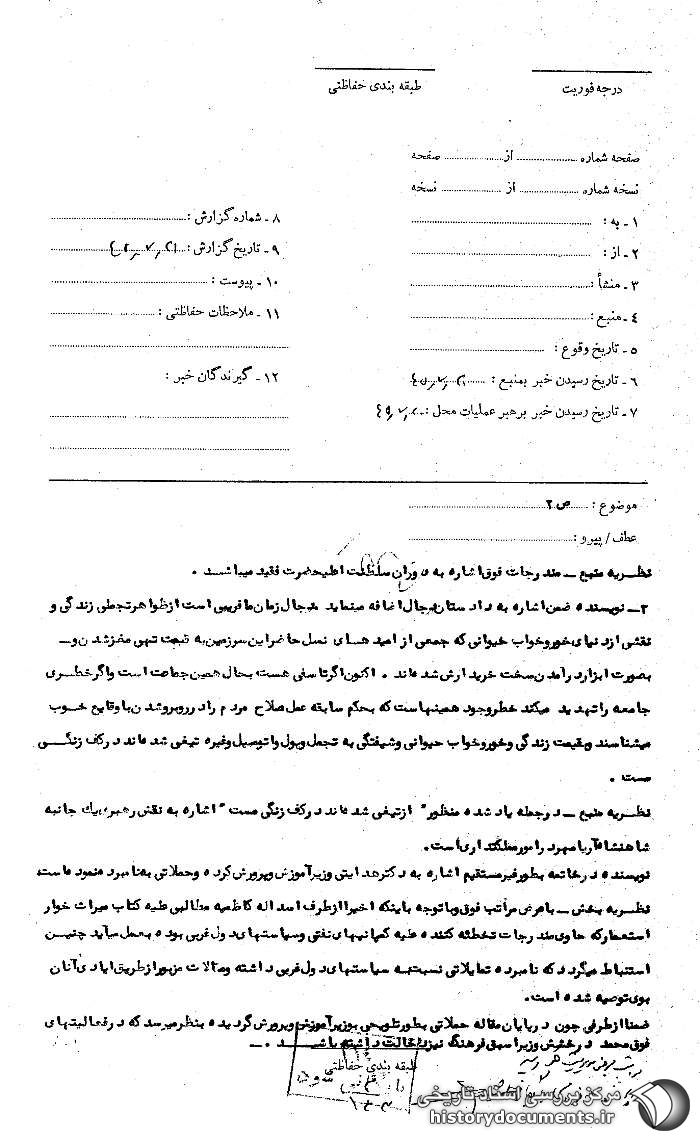 درجه فوریت
طبقه بندی حفاظتی
صفحه شماره از صفحه
نسخه شماره از نسخه
۱ - به :
۲ - از :
۳ - منشأ :
۴ - منبع :
۵ - تاریخ وقوع :
۶ - تاریخ رسیدن خبر بمنبع :
۷ - تاریخ رسیدن خبر برهبر عملیات محل :
۸ - شماره گزارش :
۹ - تاریخ گزارش :
۱۰ - پیوست :
۱۱ - ملاحظات حفاظتی :
۱۲ - گیرندگان خبر :
موضوع : ص ۲
عطف / پیرو :
نظریه منبع ـ مندرجات فوق اشاره به دوران سلطنت اعلیحضرت فقید میباشد .
۳ـ نویسنده ضمن اشاره به داد ستان رجال اضافه مینماید رجال زمان ما فریبی است از ظواهر تجملی زندگی و
نقشی از دنیای خور و خواب حیوانی که جمعی از امید های نسل حاضر این سرزمین به قیمت تهی مغز شدن و ـ
بصورت ابزار در آمدن سخت خریدارش شده اند . اکنون اگر تاسفی هست بحال همین جماعت است و اگر خطری
جامعه را تهدید میکند خطر وجود همینهاست که بحکم سابقه عمل صلاح مردم را در روبرو شدن با وقایع خوب
میشناسند و بقیمت زندگی و خور و خواب حیوانی و شیفتگی به تجمل و پول و اتومبیل و غیره تیغی شده اند در کف زنگی
مست .
نظریه منبع ـ در جمله یاد شده منظور " از تیغی شده اند در کف زنگی مست " اشاره به نقش رهبری یک جانبه
شاهنشاه آریامهر در امور مملکتداری است .
نویسنده در خاتمه بطور غیر مستقیم اشاره به دکتر هدایتی وزیر آموزش و پرورش کرده و حملاتی به نامبرده نموده است .
نظریه بخش ـ با عرض مراتب فوق و با توجه باینکه اخیرا از طرف اسداله کاظمیه مطالبی علیه کتاب میراث خوار
استعمار که حاوی مندرجات تخطئه کننده علیه کمپانیهای نفتی و سیاستهای دول غربی بوده بعمل میآید چنین
استنباط میگردد که نامبرده تمایلاتی نسبت به سیاستهای دول غربی داشته و مقالات مزبور از طریق ایادی آنان
بوی توصیه شده است .
ضمنا از طرفی چون در پایان مقاله حملاتی بطور تلویحی بوزیر آموزش و پرورش گردیده بنظر میرسد که در فعالیتهای
فوق محمد درخشش وزیر اسبق فرهنگ نیز دخالت داشته باشد . ـ
طبقه بندی حفاظتی
مرکز بررسی اسناد تاریخی
historydocuments.ir